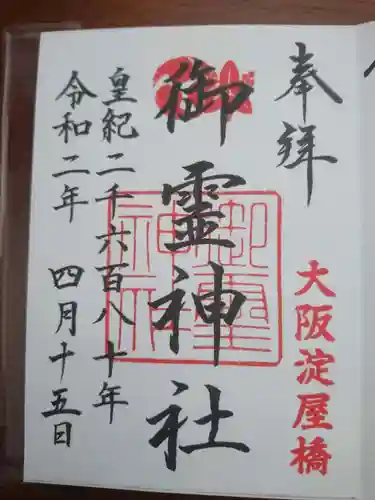 奉拝
大阪淀屋橋
御霊神社
御霊神社
皇紀二千六百八十年
令和二年 四月十五日